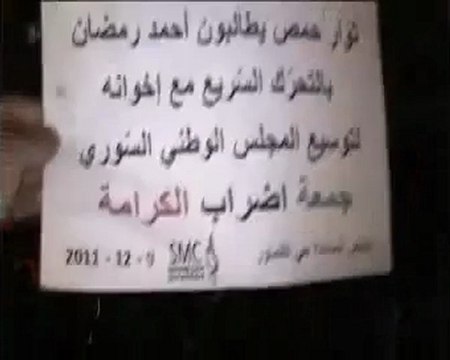 ثوار حمص يطالبون أحمد رمضان
بالتحرك السريع مع إخوانه
لتوسيع المجلس الوطني السوري
جمعة اضراب الكرامة
2011 - 12 - 9 SMC